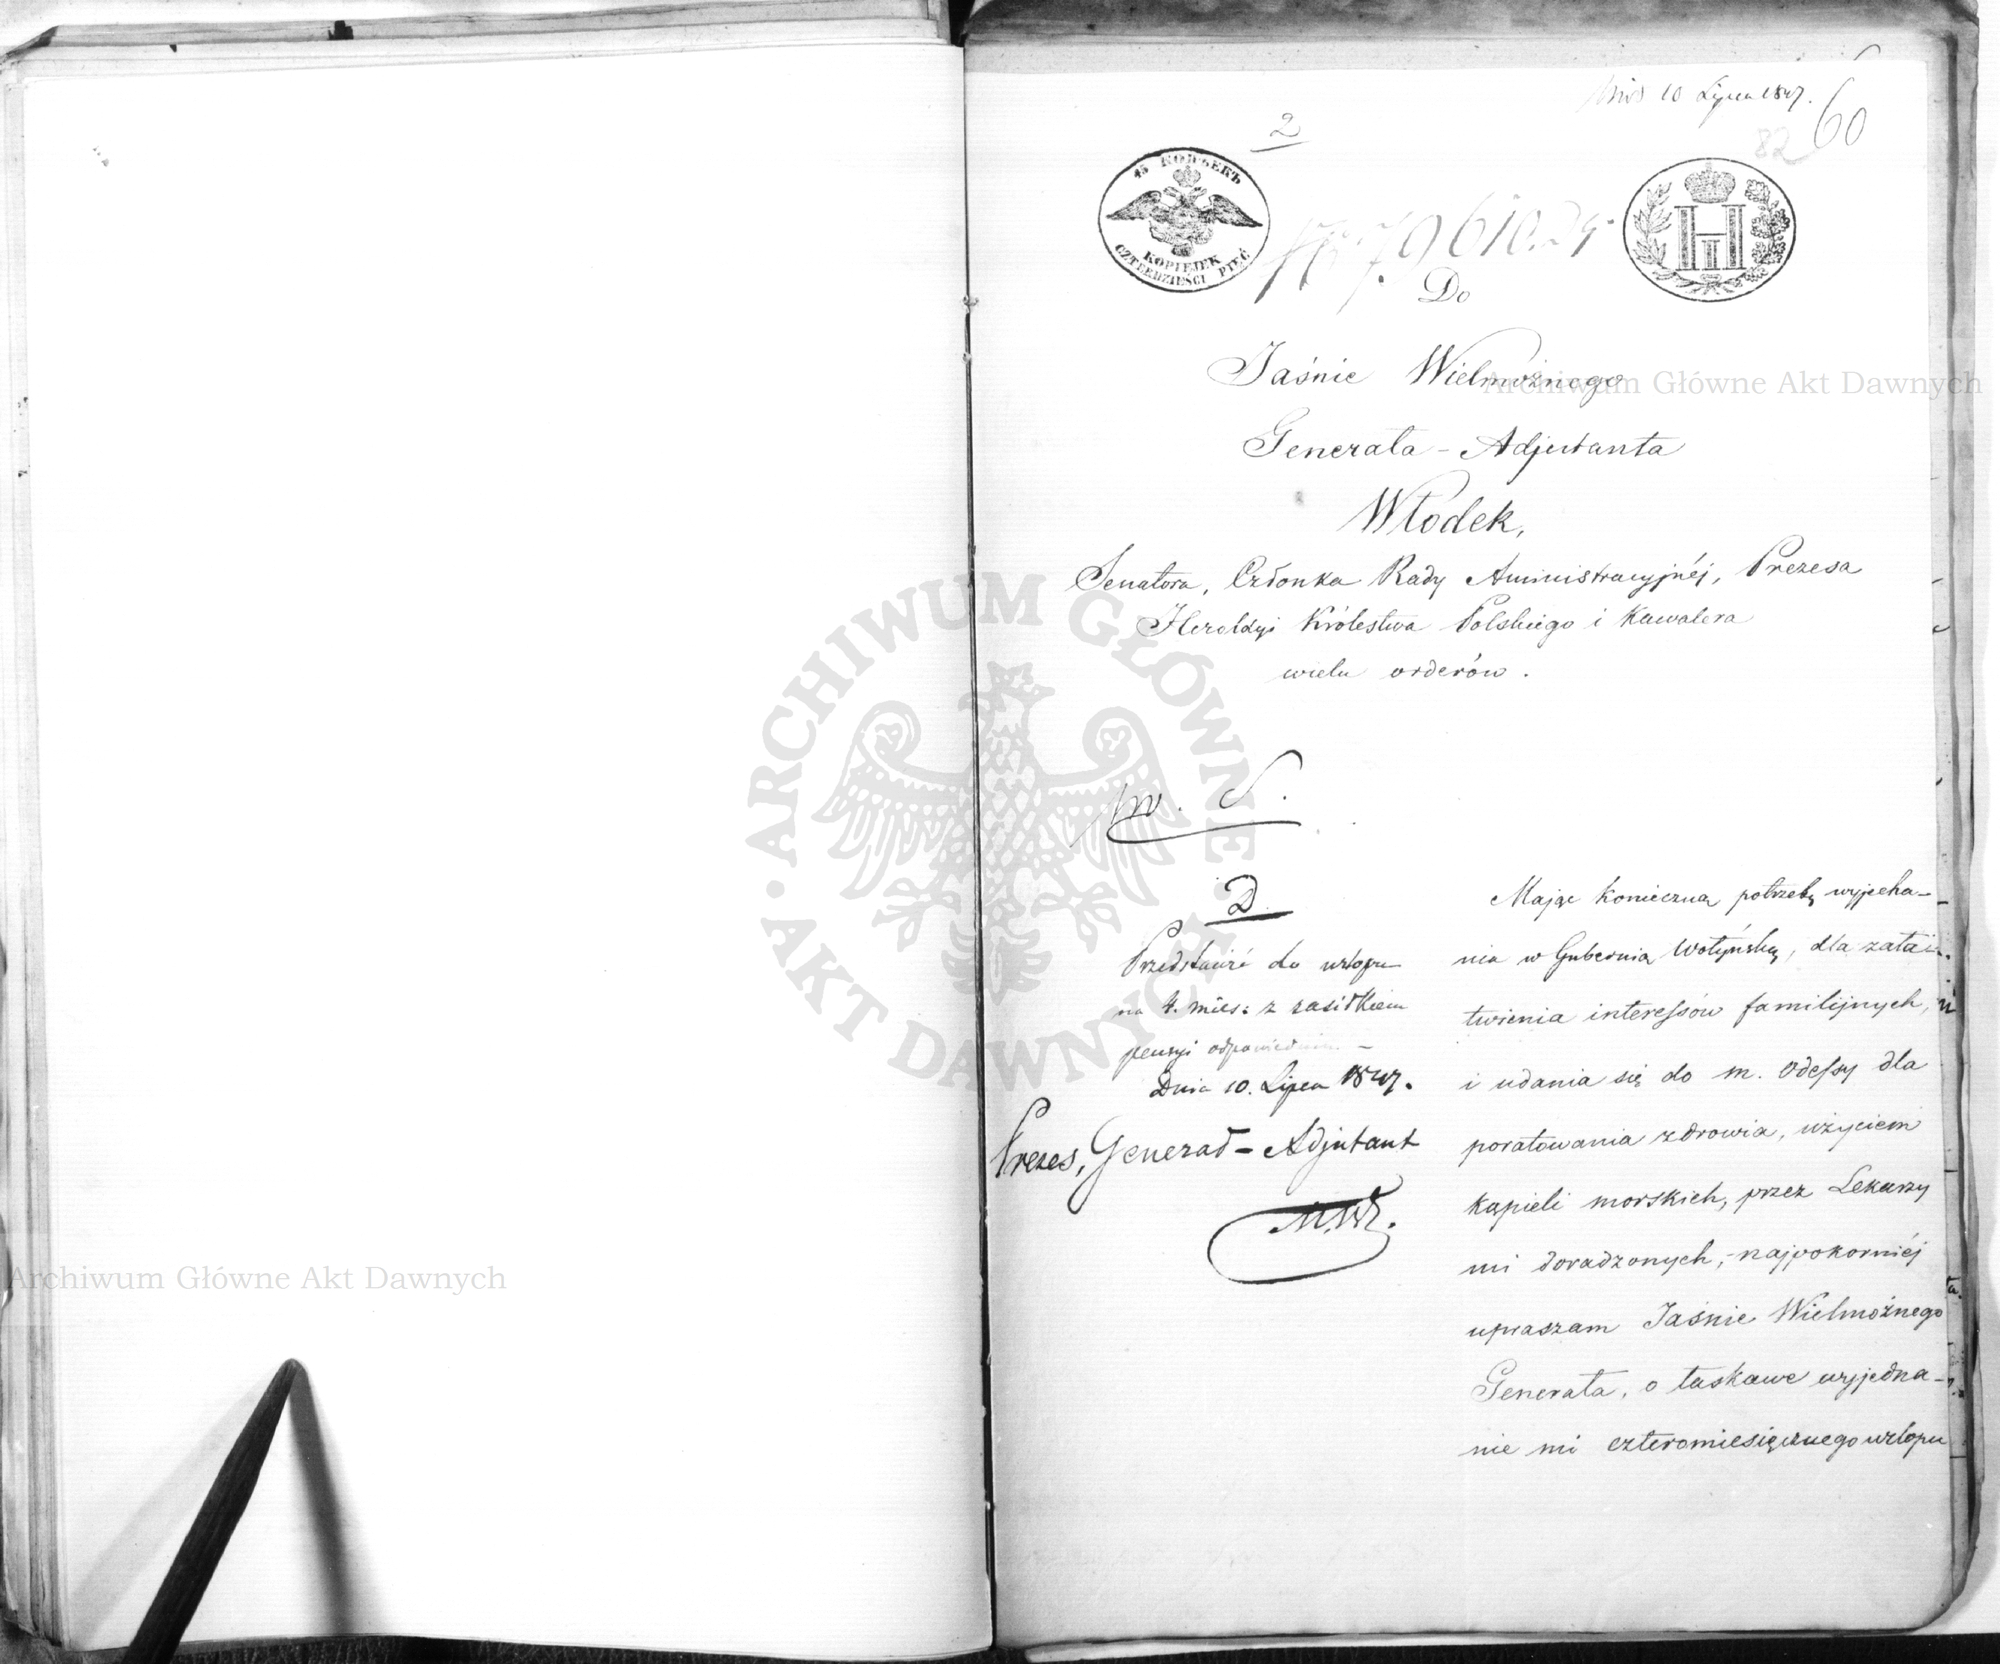 10 Lipca 1847.
60
82
2
45 КОПѢЕКЪ
KOPIEJEK
CZTERDZIEŚCI PIĘĆ
Do
Jaśnie Wielmożnego
Generała - Adjutanta
Włodek,
Senatora, Członka Rady Aministracyjnéj, Prezesa
Heroldyi Królestwa Polskiego i Kawalera
wielu orderów.
D.
Przedstawić do urlopu
na 4. mies: z zasiłkiem
pensyi odpowiednim. -
Dnia 10. Lipca 1847.
Prezes, Generał - Adjutant
Mając konieczną potrzebę wyjecha-
nia w Gubernią Wołyńską, dla zała-
twienia interessów familijnych,
i udania się do m. Odessy dla
poratowania zdrowia, użyciem
kąpieli morskich, przez Lekarzy
mi doradzonych, - najpokorniéj
upraszam Jaśnie Wielmożnego
Generała, o łaskawe wyjedna-
nie mi czteromiesięcznego urlopu
ARCHIWUM GŁÓWNE AKT DAWNYCH
Archiwum Główne Akt Dawnych
Archiwum Główne Akt Dawnych